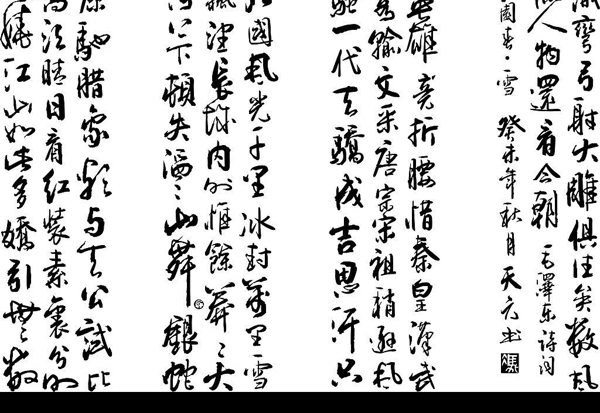 北國風光千里冰封萬里雪
飄望長城内外惟餘莽莽大
河上下頓失滔滔山舞銀蛇
原馳臘象欲与天公試比
高須晴日看紅裝素裹分外
嬈江山如此多嬌引無數
英雄競折腰惜秦皇漢武
輸文采唐宗宋祖稍遜風
騷一代天驕成吉思汗只
識彎弓射大雕俱往矣數風
流人物還看今朝 毛澤東詩詞
園春·雪 癸未年秋月 天元书